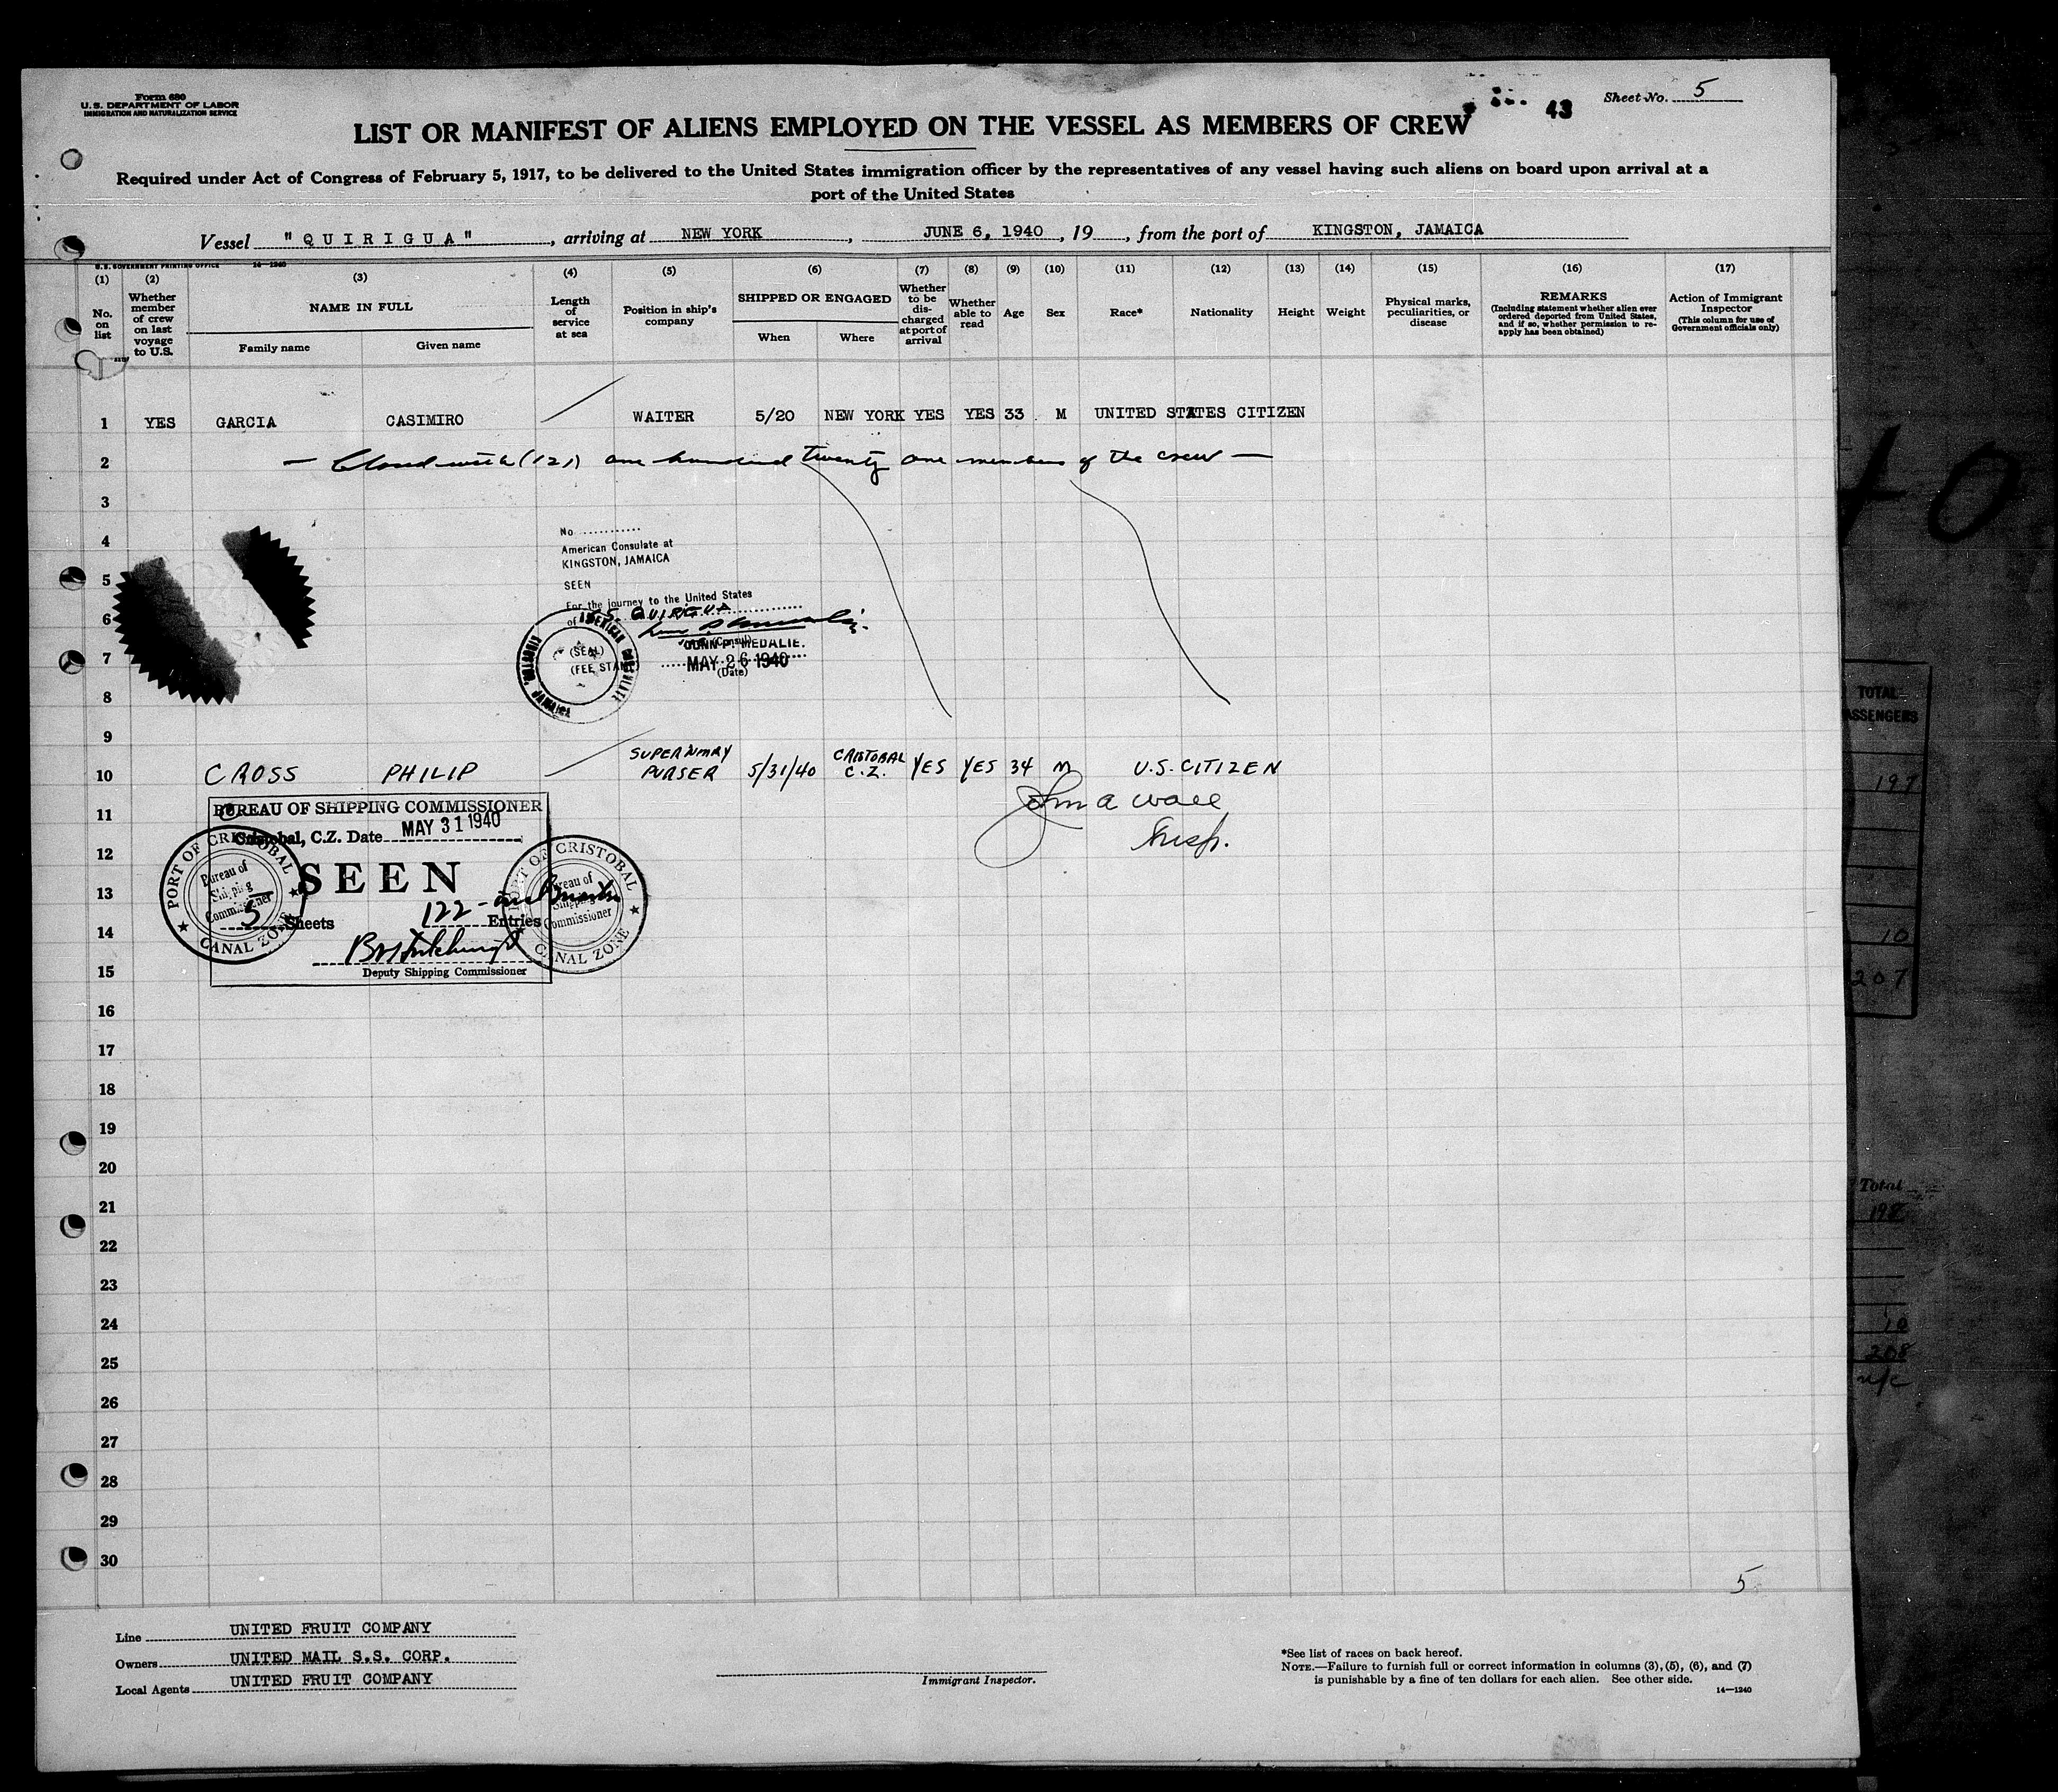 Form 680
U.S. DEPARTMENT OF LABOR
IMMIGRATION AND NATURALIZATION SERVICE
43
Sheet No. 5
LIST OR MANIFEST OF ALIENS EMPLOYED ON THE VESSEL AS MEMBERS OF CREW
Required under Act of Congress of February 5, 1917, to be delivered to the United States immigration officer by the representatives of any vessel having such aliens on board upon arrival at a
port of the United States
Vessel "QUIRIGUA", arriving at NEW YORK, JUNE 6, 1940, 19, from the port of KINGSTON, JAMAICA
U.S. GOVERNMENT PRINTING OFFICE 14—1240
(1) No. on list
(2) Whether member of crew on last voyage to U.S.
(3) NAME IN FULL
Family name Given name
(4) Length of service at sea
(5) Position in ship's company
(6) SHIPPED OR ENGAGED
When Where
(7) Whether to be discharged at port of arrival
(8) Whether able to read
(9) Age
(10) Sex
(11) Race*
(12) Nationality
(13) Height
(14) Weight
(15) Physical marks, peculiarities, or disease
(16) REMARKS
(Including statement whether alien ever ordered deported from United States, and if so, whether permission to reapply has been obtained)
(17) Action of Immigrant Inspector
(This column for use of Government officials only)
1 YES GARCIA CASIMIRO WAITER 5/20 NEW YORK YES YES 33 M UNITED STATES CITIZEN
2 — Closed with (121) one hundred twenty one members of the crew —
3
4
5
6
7
8
9
No
American Consulate at
KINGSTON, JAMAICA
SEEN
For the journey to the United States
of S.S. QUIRIGUA
(Consul)
JOHN P. MEDALIE.
MAY 26 1940
(Date)
(SEAL)
(FEE STAMP)
AMERICAN CONSULATE
JAMAICA
10 CROSS PHILIP SUPERNMRY PURSER 5/31/40 CRISTOBAL C.Z. YES YES 34 M U.S. CITIZEN
John A Wall
Insp.
11
12
13
14
15
BUREAU OF SHIPPING COMMISSIONER
Cristobal, C.Z. Date MAY 31 1940
SEEN
5 Sheets 122 Entries
Deputy Shipping Commissioner
PORT OF CRISTOBAL
Bureau of
Shipping
Commissioner
CANAL ZONE
PORT OF CRISTOBAL
Bureau of
Shipping
Commissioner
CANAL ZONE
16
17
18
19
20
21
22
23
24
25
26
27
28
29
30
5
Line UNITED FRUIT COMPANY
Owners UNITED MAIL S.S. CORP.
Local Agents UNITED FRUIT COMPANY
Immigrant Inspector.
*See list of races on back hereof.
NOTE.—Failure to furnish full or correct information in columns (3), (5), (6), and (7)
is punishable by a fine of ten dollars for each alien. See other side.
14—1240
40
TOTAL
PASSENGERS
197
10
207
Total
198
10
208